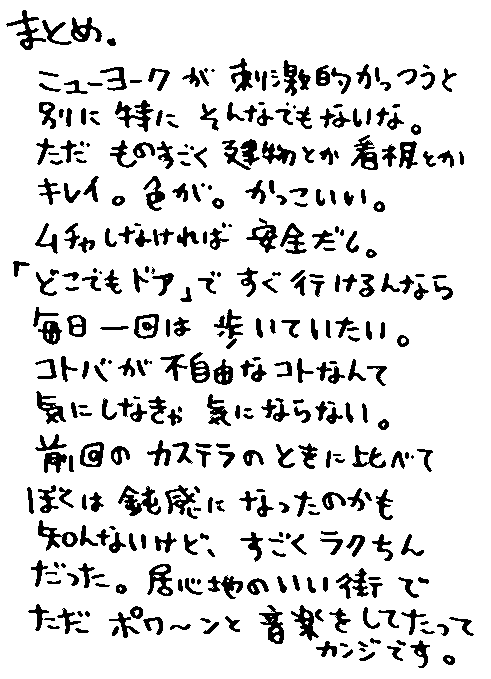 まとめ.
ニューヨークが刺激的かっつうと
別に特にそんなでもないな。
ただものすごく建物とか看板とか
キレイ。色が。かっこいい。
ムチャしなければ安全だし。
「どこでもドア」ですぐ行けるんなら
毎日一回は歩いていたい。
コトバが不自由なコトなんて
気にしなきゃ気にならない。
前回のカステラのときに比べて
ぼくは鈍感になったのかも
知んないけど、すごくラクちん
だった。居心地のいい街で
ただポワ〜ンと音楽をしてたって
カンジです。